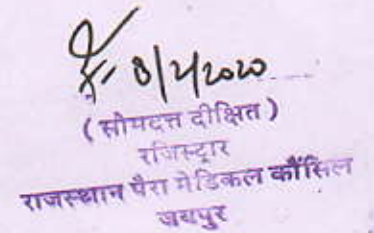 ( सोमदत्त दीक्षित )
रजिस्ट्रार
राजस्थान पैरा मेडिकल कौंसिल
जयपुर